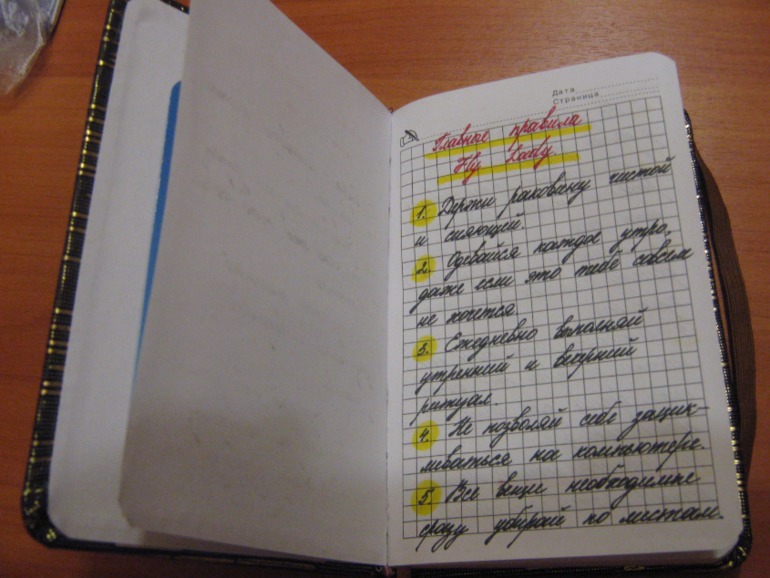 Дата
Страница
Главные правила
Fly Lady.
1. Держи раковину чистой
и сияющей.
2. Одевайся каждое утро,
даже если это тебе совсем
не хочется.
3. Ежедневно выполняй
утренний и вечерний
ритуал.
4. Не позволяй себе зацик-
ливаться на компьютере.
5. Все вещи необходимые
сразу убирай по местам.